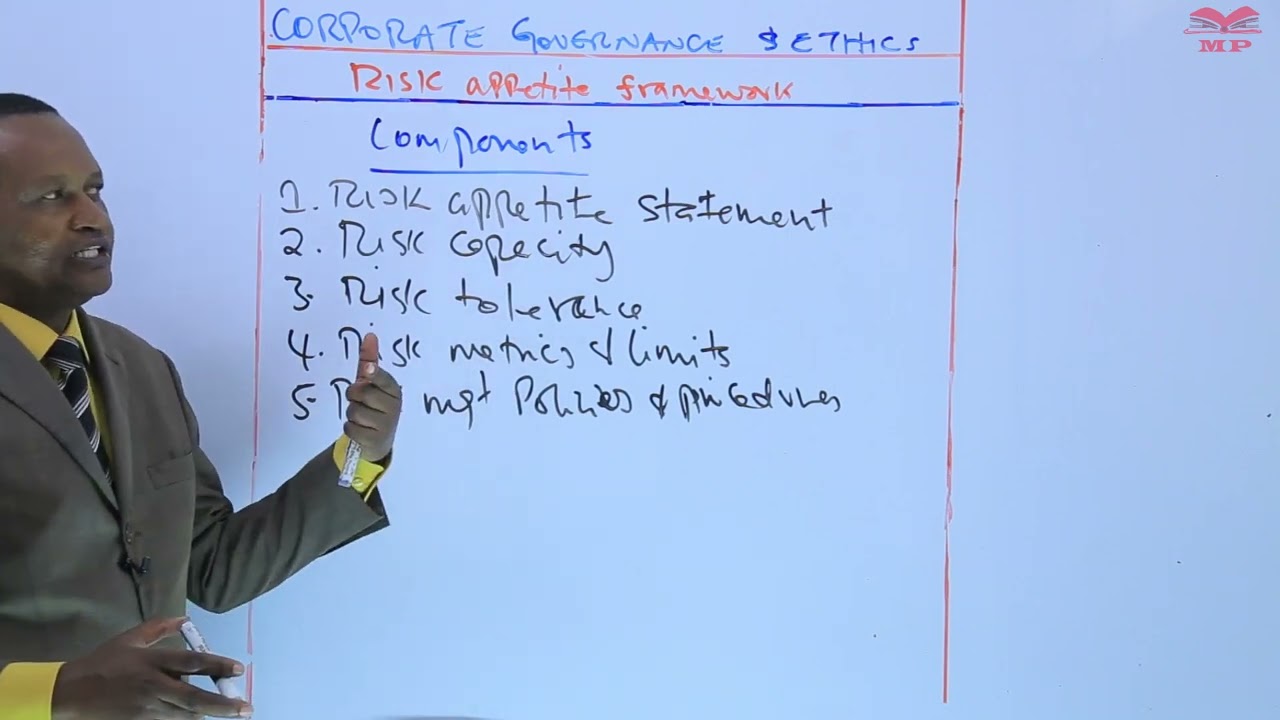 CORPORATE GOVERNANCE & ETHICS
MP
Risk appetite framework
Components
1. Risk appetite statement
2. Risk capacity
3. Risk tolerance
4. Risk metrics & limits
5. mgt Policies & procedures